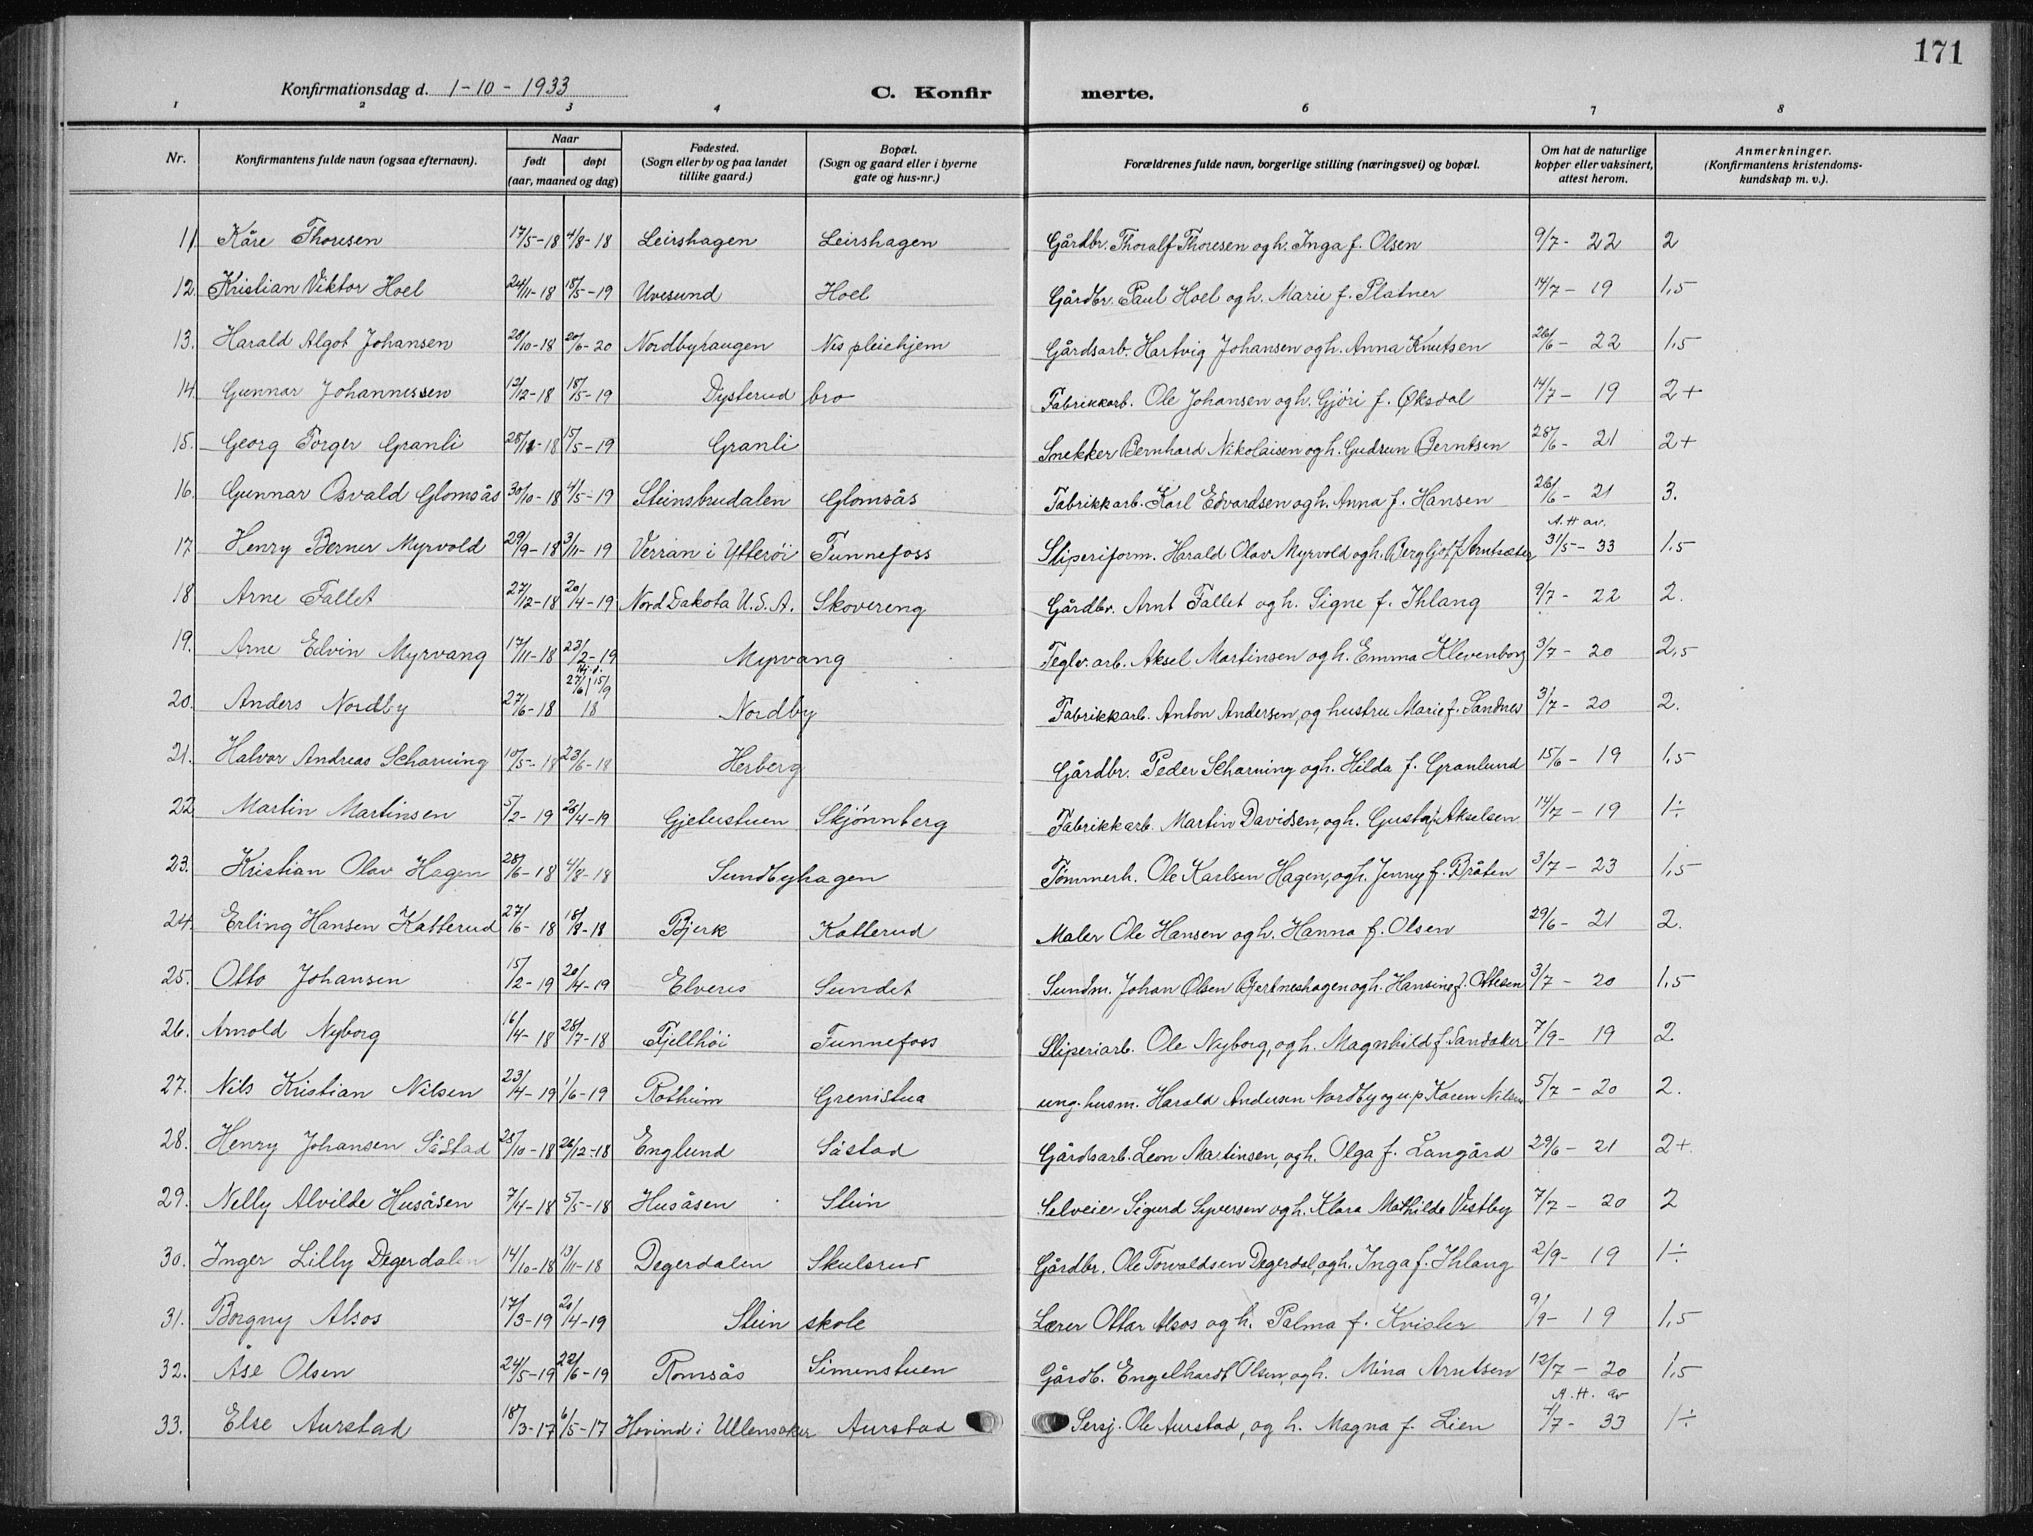 171
Konfirmationsdag d. 1-10-1933 C. Konfirmerte.
1 2 3 4 6 7 8
Nr. Konfirmantens fulde navn (ogsaa efternavn). Naar født døpt (aar, maaned og dag) Fødested. (Sogn eller by og paa landet tillike gaard.) Bopæl. (Sogn og gaard eller i byerne gate og hus-nr.) Forældrenes fulde navn, borgerlige stilling (næringsvei) og bopæl. Om hat de naturlige kopper eller vaksinert, attest herom. Anmerkninger. (Konfirmantens kristendomskundskap m. v.).
11 Kåre Thoresen 17/5-18 4/8-18 Leirshagen Leirshagen Gårdbr. Thoralf Thoresen og h. Inga f. Olsen 9/7- 22 2
12. Kristian Viktor Hoel 24/11-18 18/5-19 Uvesund Hoel Gårdbr. Paul Hoel og h. Marie f. Platner 14/7- 19 1,5
13. Harald Algot Johansen 28/10-18 20/6-20 Nordbyhaugen Nes pleiehjem Gårdsarb. Hartvig Johansen og h. Anna Knutsen 26/6- 22 1,5
14. Gunnar Johannessen 12/12-18 18/5-19 Dysterud bro Fabrikkarb. Ole Johansen og h. Gjøri f. Øksdal 14/7- 19 2+
15. Georg Torger Granli 28/12-18 15/5-19 Granli Snekker Bernhard Nikolaisen og h. Gudrun Berntsen 28/6- 21 2+
16. Gunnar Osvald Glomsås 30/10-18 4/5-19 Steinsbrudalen Glomsås Fabrikkarb. Karl Edvardsen og h. Anna f. Hansen 26/6- 21 3.
17 Henry Berner Myrvold 29/9-18 3/11-19 Verran i Ytterøi Funnefoss Sliperiform. Harald Olav Myrvold og h. Bergljot f. Arntsæter A.H. av. 31/5-33 1,5
18 Arne Fallet 27/12-18 20/4-19 Nord Dakota U.S.A. Skovereng Gårdbr. Arnt Fallet og h. Signe f. Ihlang 9/7- 22 2.
19. Arne Edvin Myrvang 17/11-18 23/2-19 Myrvang Teglv.arb. Aksel Martinsen og h. Emma Klevenborg 3/7- 20 2,5
20. Anders Nordby 27/6-18 27/6 15/9 18 Nordby Fabrikkarb. Anton Andersen, og hustru Marie f. Sandnes 3/7- 20 2.
21. Halvor Andreas Scharning 10/5-18 23/6-18 Herberg Gårdbr. Peder Scharning og h. Hilda f. Granlund 15/6- 19 1,5
22 Martin Martinsen 5/2-19 20/4-19 Gjetustuen Skjønnberg Fabrikkarb. Martin Davidsen, og h. Gusta f. Akselsen 14/7- 19 1÷
23. Kristian Olav Hagen 28/6-18 4/8-18 Sundbyhagen Tømmerh. Ole Karlsen Hagen, og h. Jenny f. Bråten 3/7- 23 1,5
24. Erling Hansen Katterud 27/6-18 18/8-18 Bjerk Katterud Maler Ole Hansen og h. Hanna f. Olsen 29/6- 21 2.
25. Otto Johansen 15/2-19 20/4-19 Elvenes Sundet Sundm. Johan Olsen Bjertneshagen og h. Hansine f. Ottesen 3/7- 20 1,5
26. Arnold Nyborg 16/4-18 28/7-18 Fjellhøi Funnefoss Sliperiarb. Ole Nyborg, og h. Magnhild f. Sandaker 7/9- 19 2
27. Nils Kristian Nilsen 23/4-19 1/6-19 Rotheim Grenistua ung. husm. Harald Andersen Nordby og u.p Karen Nilsen 5/7- 20 2.
28. Henry Johansen Såstad 25/10-18 26/12-18 Englund Såstad Gårdsarb. Leon Martinsen, og h. Olga f. Langård 29/6- 21 2+
29. Nelly Alvilde Husåsen 7/4-18 5/5-18 Husåsen Stein Selveier Sigurd Syversen og h. Klara Mathilde Vestby 7/7- 20 2
30. Inger Lilly Degerdalen 14/10-18 13/11-18 Degerdalen Skulsrud Gårdbr. Ole Torvaldsen Degerdal, og h. Inga f. Ihlang 2/9- 19 1÷
31. Borgny Alsos 17/3-19 20/4-19 Stein skole Lærer Ottar Alsos og h. Palma f. Kvisler 9/9- 19 1,5
32. Åse Olsen 24/5-19 22/6-19 Romsås Simenstuen Gårdb. Engelhardt Olsen, og h. Mina Arntsen 12/7- 20 1,5
33. Else Aurstad 18/3-17 6/5-17 Hovind i Ullensaker Aurstad Sersj. Ole Aurstad, og h. Magna f. Lien A.H. av 1/7- 33 1÷